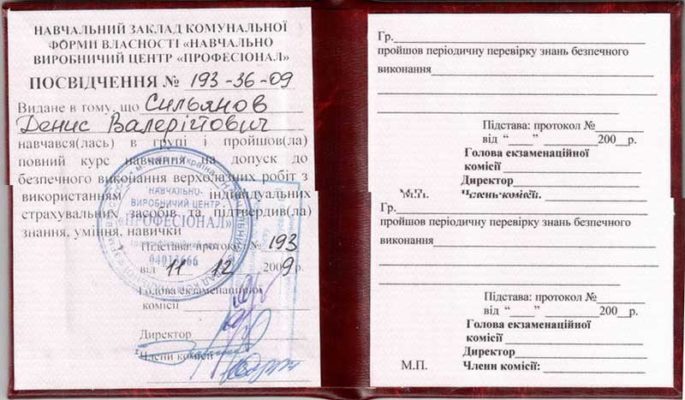 НАВЧАЛЬНИЙ ЗАКЛАД КОМУНАЛЬНОЇ
ФОРМИ ВЛАСНОСТІ «НАВЧАЛЬНО
ВИРОБНИЧИЙ ЦЕНТР «ПРОФЕСІОНАЛ»
ПОСВІДЧЕННЯ № 193-36-09
Видане в тому, що Сильянов
Денис Валерійович
навчався(лась) в групі і пройшов(ла)
повний курс навчання на допуск до
безпечного виконання верхолазних робіт з
використанням індивідуальних
страхувальних засобів та підтвердив(ла)
знання, уміння, навички
Підстава: протокол № 193
від 11 12 2009р.
Голова екзаменаційної
комісії
Директор
Члени комісії
НАВЧАЛЬНО-
ВИРОБНИЧИЙ ЦЕНТР
"ПРОФЕСІОНАЛ"
Гр.
пройшов періодичну перевірку знань безпечного
виконання
Підстава: протокол №
від "____" ______ 200__р.
Голова екзаменаційної
комісії
Директор
М.П. Члени комісії:
Гр.
пройшов періодичну перевірку знань безпечного
виконання
Підстава: протокол №
від "____" ______ 200__р.
Голова екзаменаційної
комісії
Директор
М.П. Члени комісії: